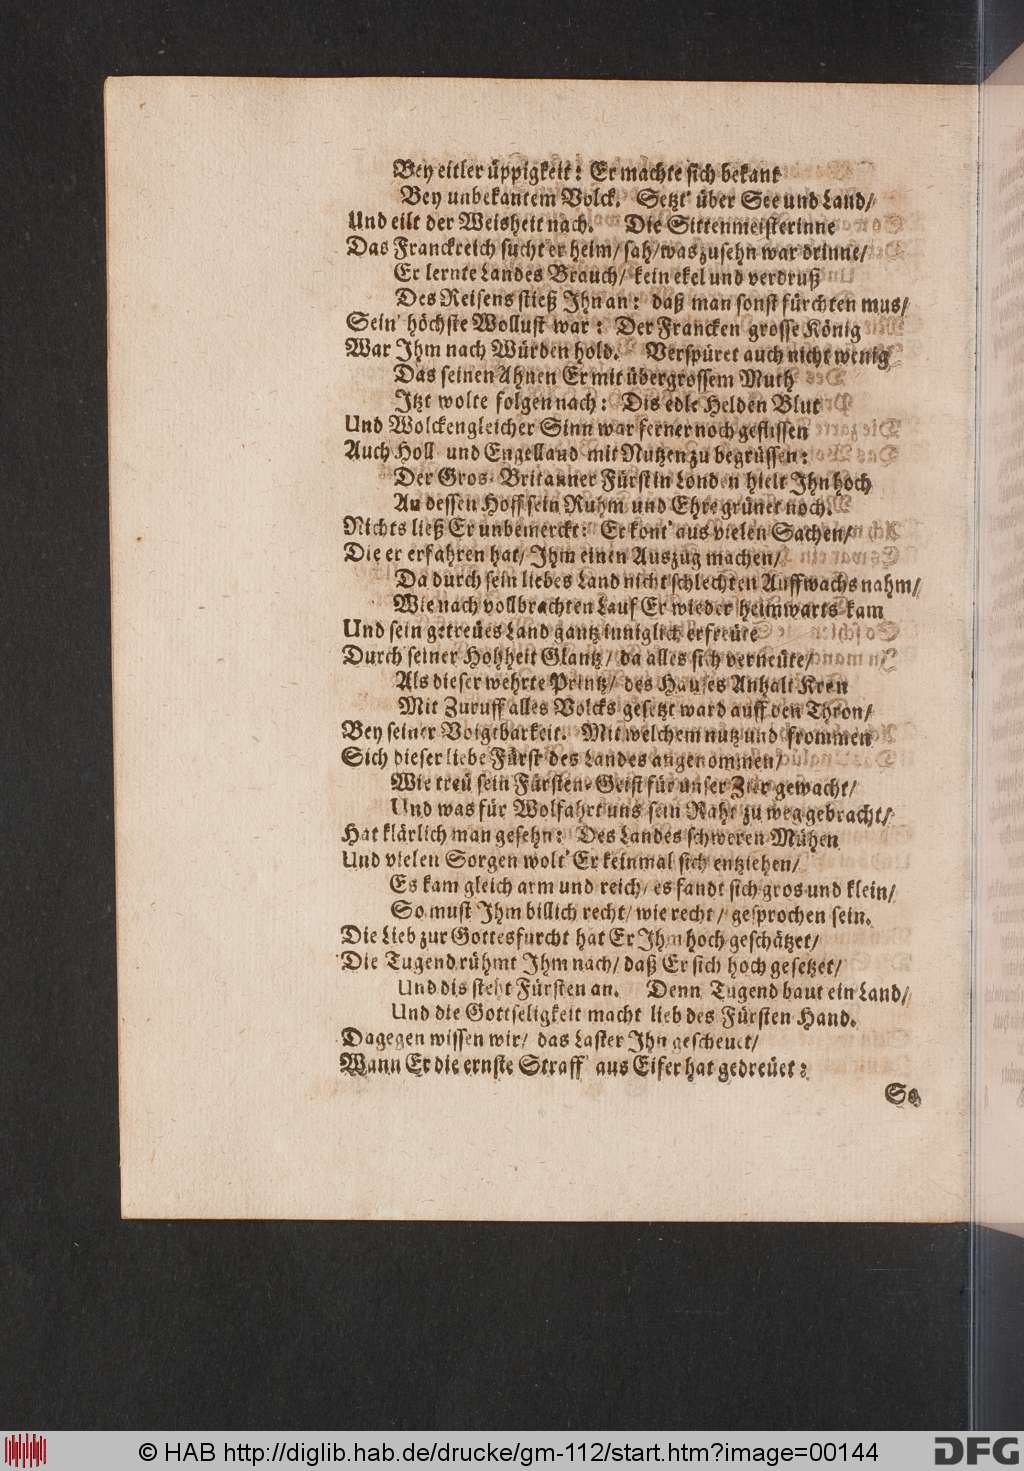 Bey eitler üppigkeit: Er machte sich bekant
Bey unbekantem Volck. Setzt' über See und Land/
Und eilt der Weisheit nach. Die Sittenmeisterinne
Das Franckreich sucht er heim/ sah/ was zusehn war drinne/
Er lernte Landes Brauch/ kein ekel und verdruß
Des Reisens stieß Ihn an: daß man sonst fürchten mus/
Sein' höchste Wollust war: Der Francken grosse König
War Ihm nach Würden hold. Verspüret auch nicht wenig
Das seinen Ahnen Er mit übergrossem Muth
Jtzt wolte folgen nach: Dis edle Helden Blut
Und Wolckengleicher Sinn war ferner noch geflissen
Auch Holl- und Engelland mit Nutzen zu begrüssen:
Der Gros-Britanner Fürst in Londen hielt Ihn hoch
An dessen Hoff sein Ruhm und Ehre grünet noch.
Nichts ließ Er unbemerckt: Er kont' aus vielen Sachen/
Die er erfahren hat/ Ihm einen Auszug machen/
Da durch sein liebes Land nicht schlechten Auffwachs nahm/
Wie nach vollbrachten Lauf Er wieder heimwarts kam
Und sein getreües Land gantz inniglich erfreüte
Durch seiner Hohheit Glantz/ da alles sich verneüte/
Als dieser wehrte Printz/ des Hauses Anhalt Kron
Mit Zuruff alles Volcks gesetzt ward auff den Thron/
Bey seiner Voigtbarkeit. Mit welchem nutz und frommen
Sich dieser liebe Fürst des Landes angenommen/
Wie treü sein Fürsten-Geist für unser Zier gewacht/
Und was für Wolfahrt uns sein Raht zu weg gebracht/
Hat klärlich man gesehn: Des Landes schweren Mühen
Und vielen Sorgen wolt' Er keinmal sich entziehen/
Es kam gleich arm und reich/ es fandt sich gros und klein/
So must Ihm billich recht/ wie recht/ gesprochen sein.
Die Lieb zur Gottesfurcht hat Er Ihm hoch geschätzet/
Die Tugend rühmt Ihm nach/ daß Er sich hoch gesetzet/
Und dis steht Fürsten an. Denn Tugend baut ein Land/
Und die Gottseligkeit macht lieb des Fürsten Hand.
Dagegen wissen wir/ das Laster Ihn gescheuet/
Wann Er die ernste Straff' aus Eifer hat gedreüet:
So
© HAB http://diglib.hab.de/drucke/gm-112/start.htm?image=00144
DFG